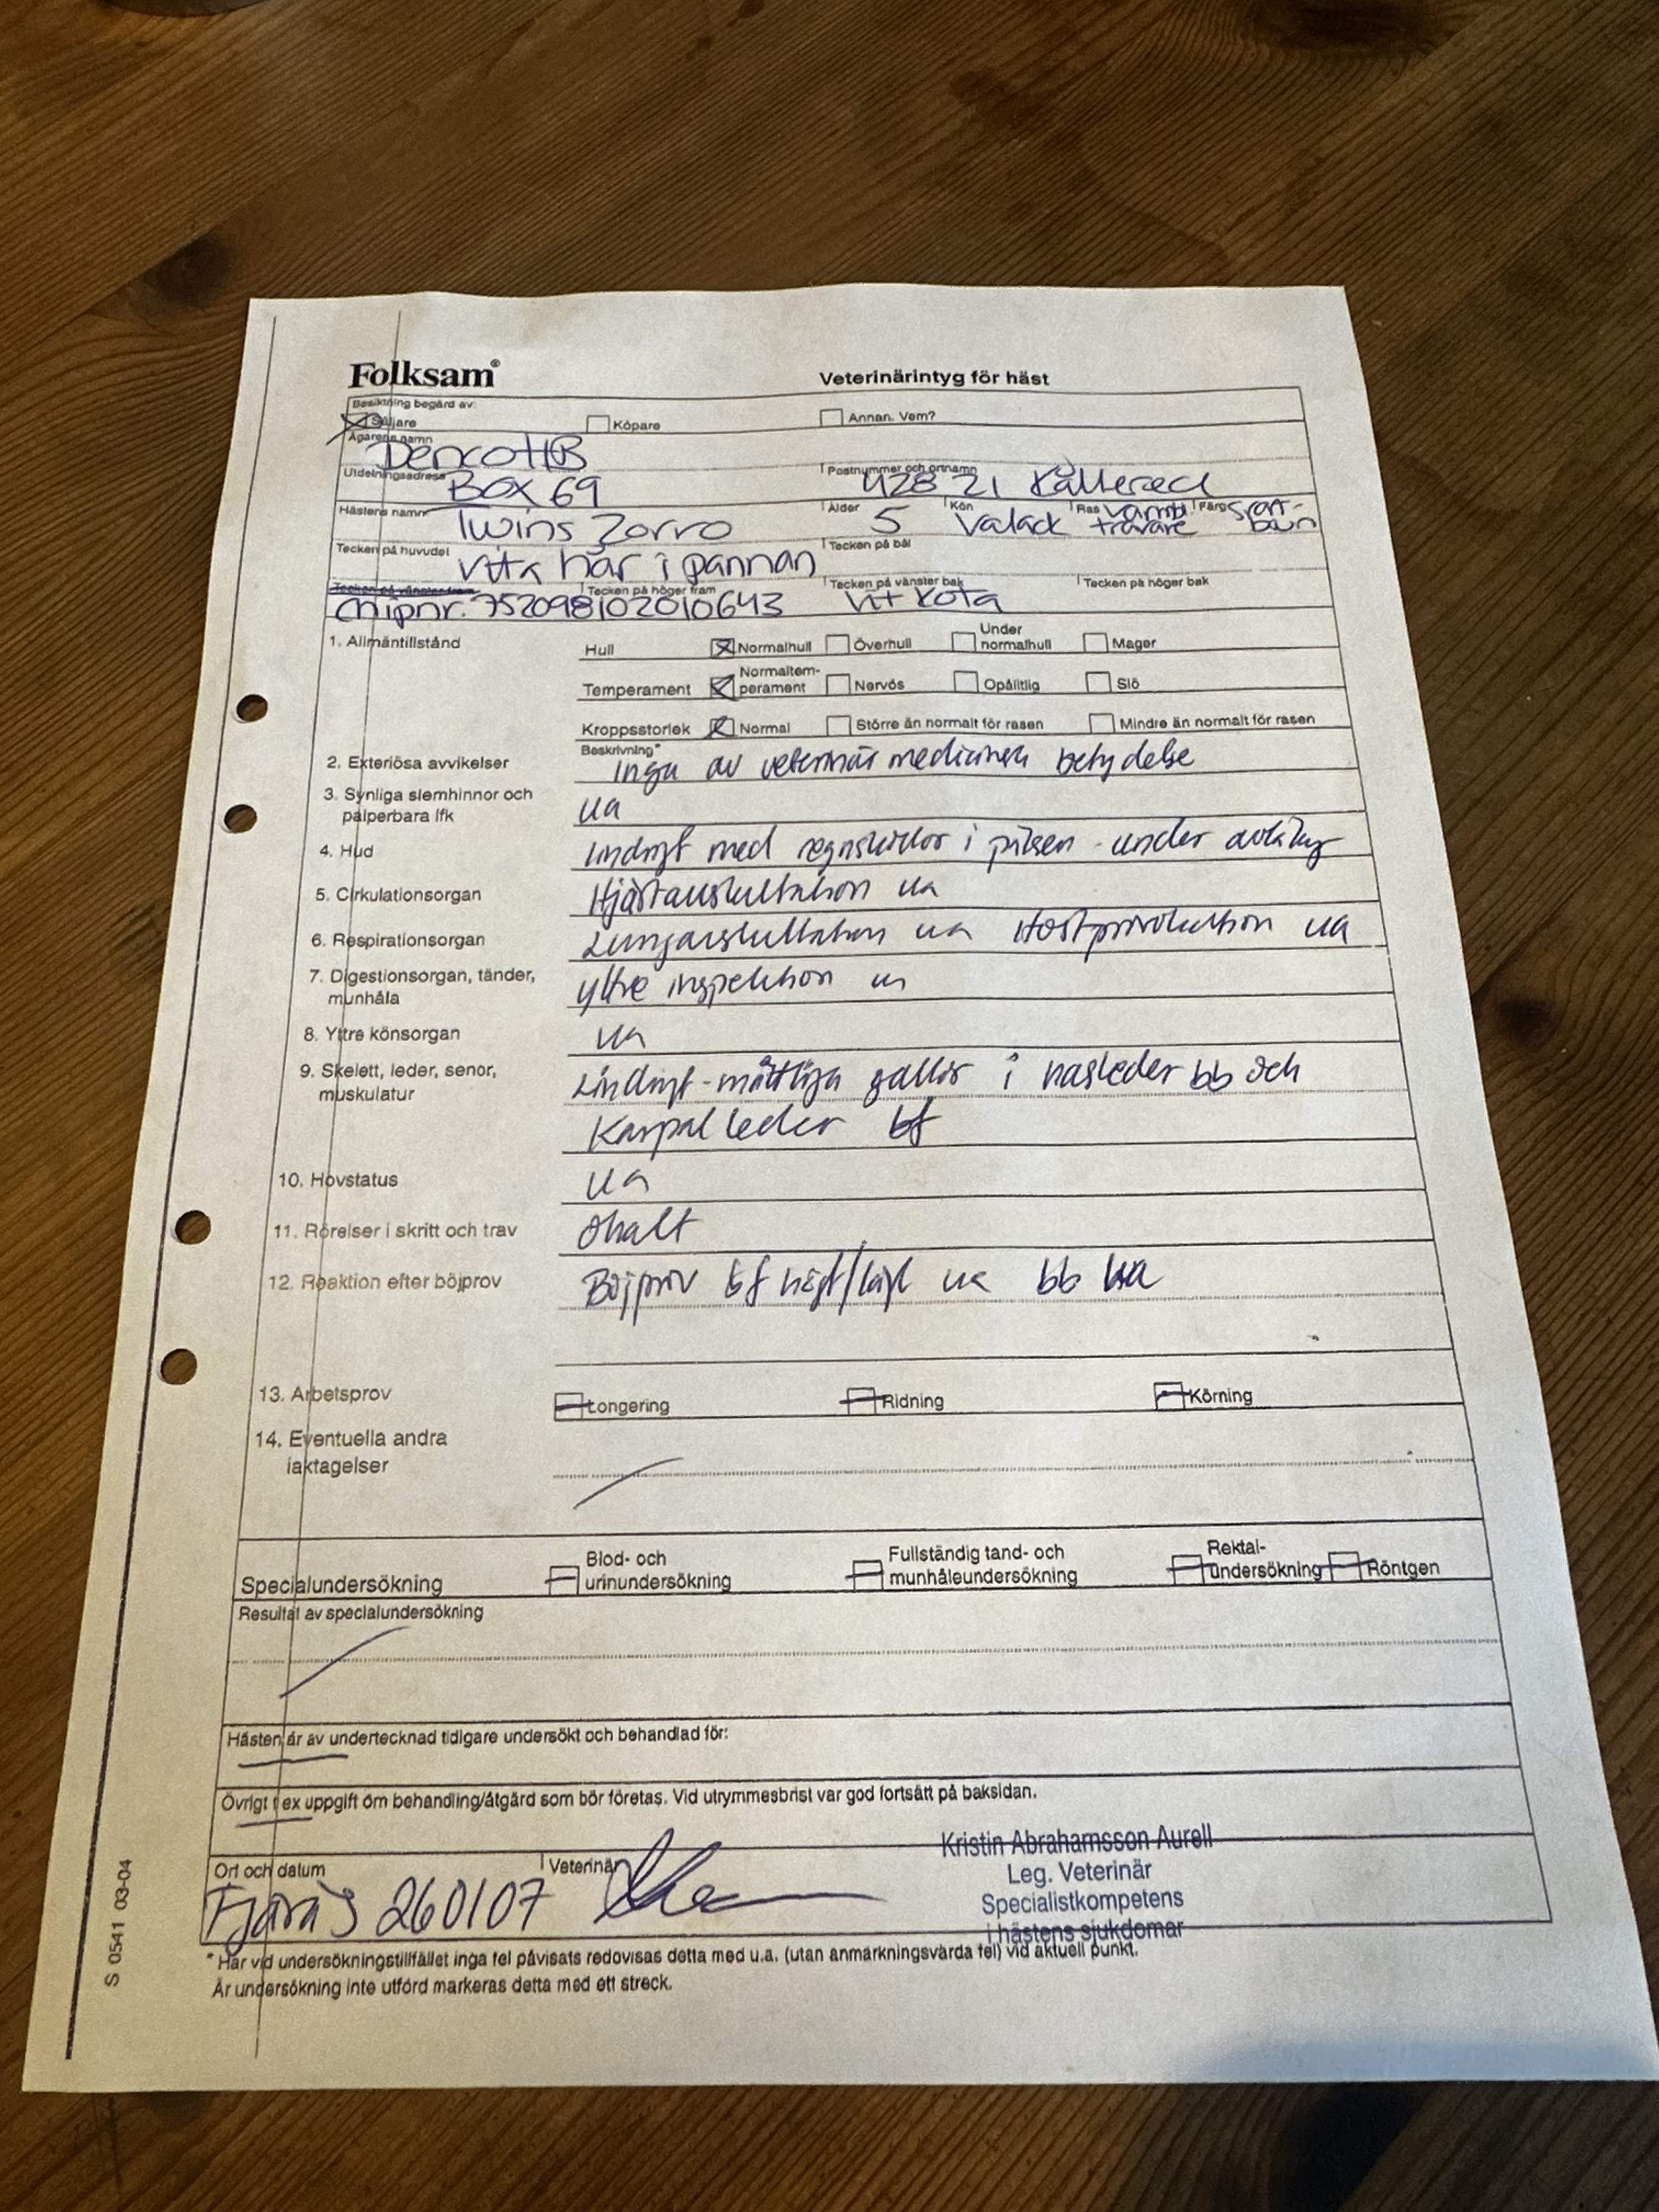 Folksam®
Veterinärintyg för häst
Besiktning begärd av:
Säljare Köpare Annan. Vem?
Ägarens namn
Denco HB
Utdelningsadress Postnummer och ortnamn
Box 69 428 21 Kållered
Hästens namn Ålder Kön Ras Färg
Twins Zorro 5 Valack Varmbl. travare svart-brun
Tecken på huvudet Tecken på bål
vita hår i pannan
Tecken på vänster fram Tecken på höger fram Tecken på vänster bak Tecken på höger bak
Chipnr. 752098102010643 Vit kota
1. Allmäntillstånd
Hull Normalhull Överhull Under normalhull Mager
Temperament Normaltem-perament Nervös Opålitlig Slö
Kroppsstorlek Normal Större än normalt för rasen Mindre än normalt för rasen
Beskrivning*
2. Exteriösa avvikelser Inga av veterinärmedicinsk betydelse
3. Synliga slemhinnor och ua
palperbara lfk
4. Hud Lindrigt med regnskador i pälsen - under avläkn
5. Cirkulationsorgan Hjärtauskultation ua
6. Respirationsorgan Lungauskultation ua Hostprovokation ua
7. Digestionsorgan, tänder, yttre inspektion ua
munhåla
8. Yttre könsorgan ua
9. Skelett, leder, senor, Lindrigt-måttliga gallor i hasleder bb och
muskulatur
Karpalleder bf
10. Hovstatus ua
11. Rörelser i skritt och trav Ohalt
12. Reaktion efter böjprov Böjprov bf högt/lågt ua bb ua
13. Arbetsprov Longering Ridning Körning
14. Eventuella andra
iaktagelser
Specialundersökning Blod- och urinundersökning Fullständig tand- och munhåleundersökning Rektal-undersökning Röntgen
Resultat av specialundersökning
Hästen är av undertecknad tidigare undersökt och behandlad för:
Övrigt t ex uppgift om behandling/åtgärd som bör företas. Vid utrymmesbrist var god fortsätt på baksidan.
Kristin Abrahamsson Aurell
Leg. Veterinär
Specialistkompetens
i hästens sjukdomar
Ort och datum Veterinär
Fjärås 260107
* Har vid undersökningstillfället inga fel påvisats redovisas detta med u.a. (utan anmärkningsvärda fel) vid aktuell punkt.
Är undersökning inte utförd markeras detta med ett streck.
S 0541 03-04